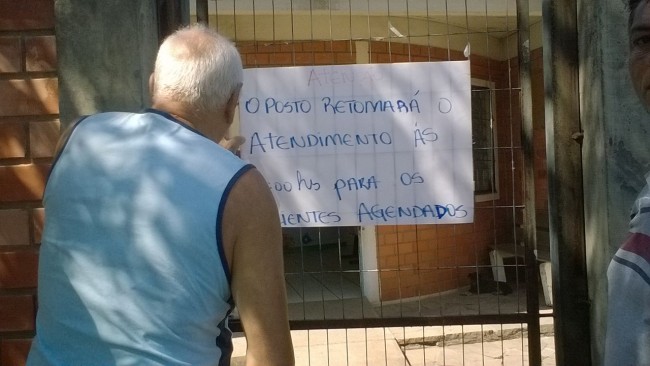 ATENÇÃO
O POSTO RETOMARÁ O
ATENDIMENTO ÀS
:00hs PARA OS
AGENDADOS